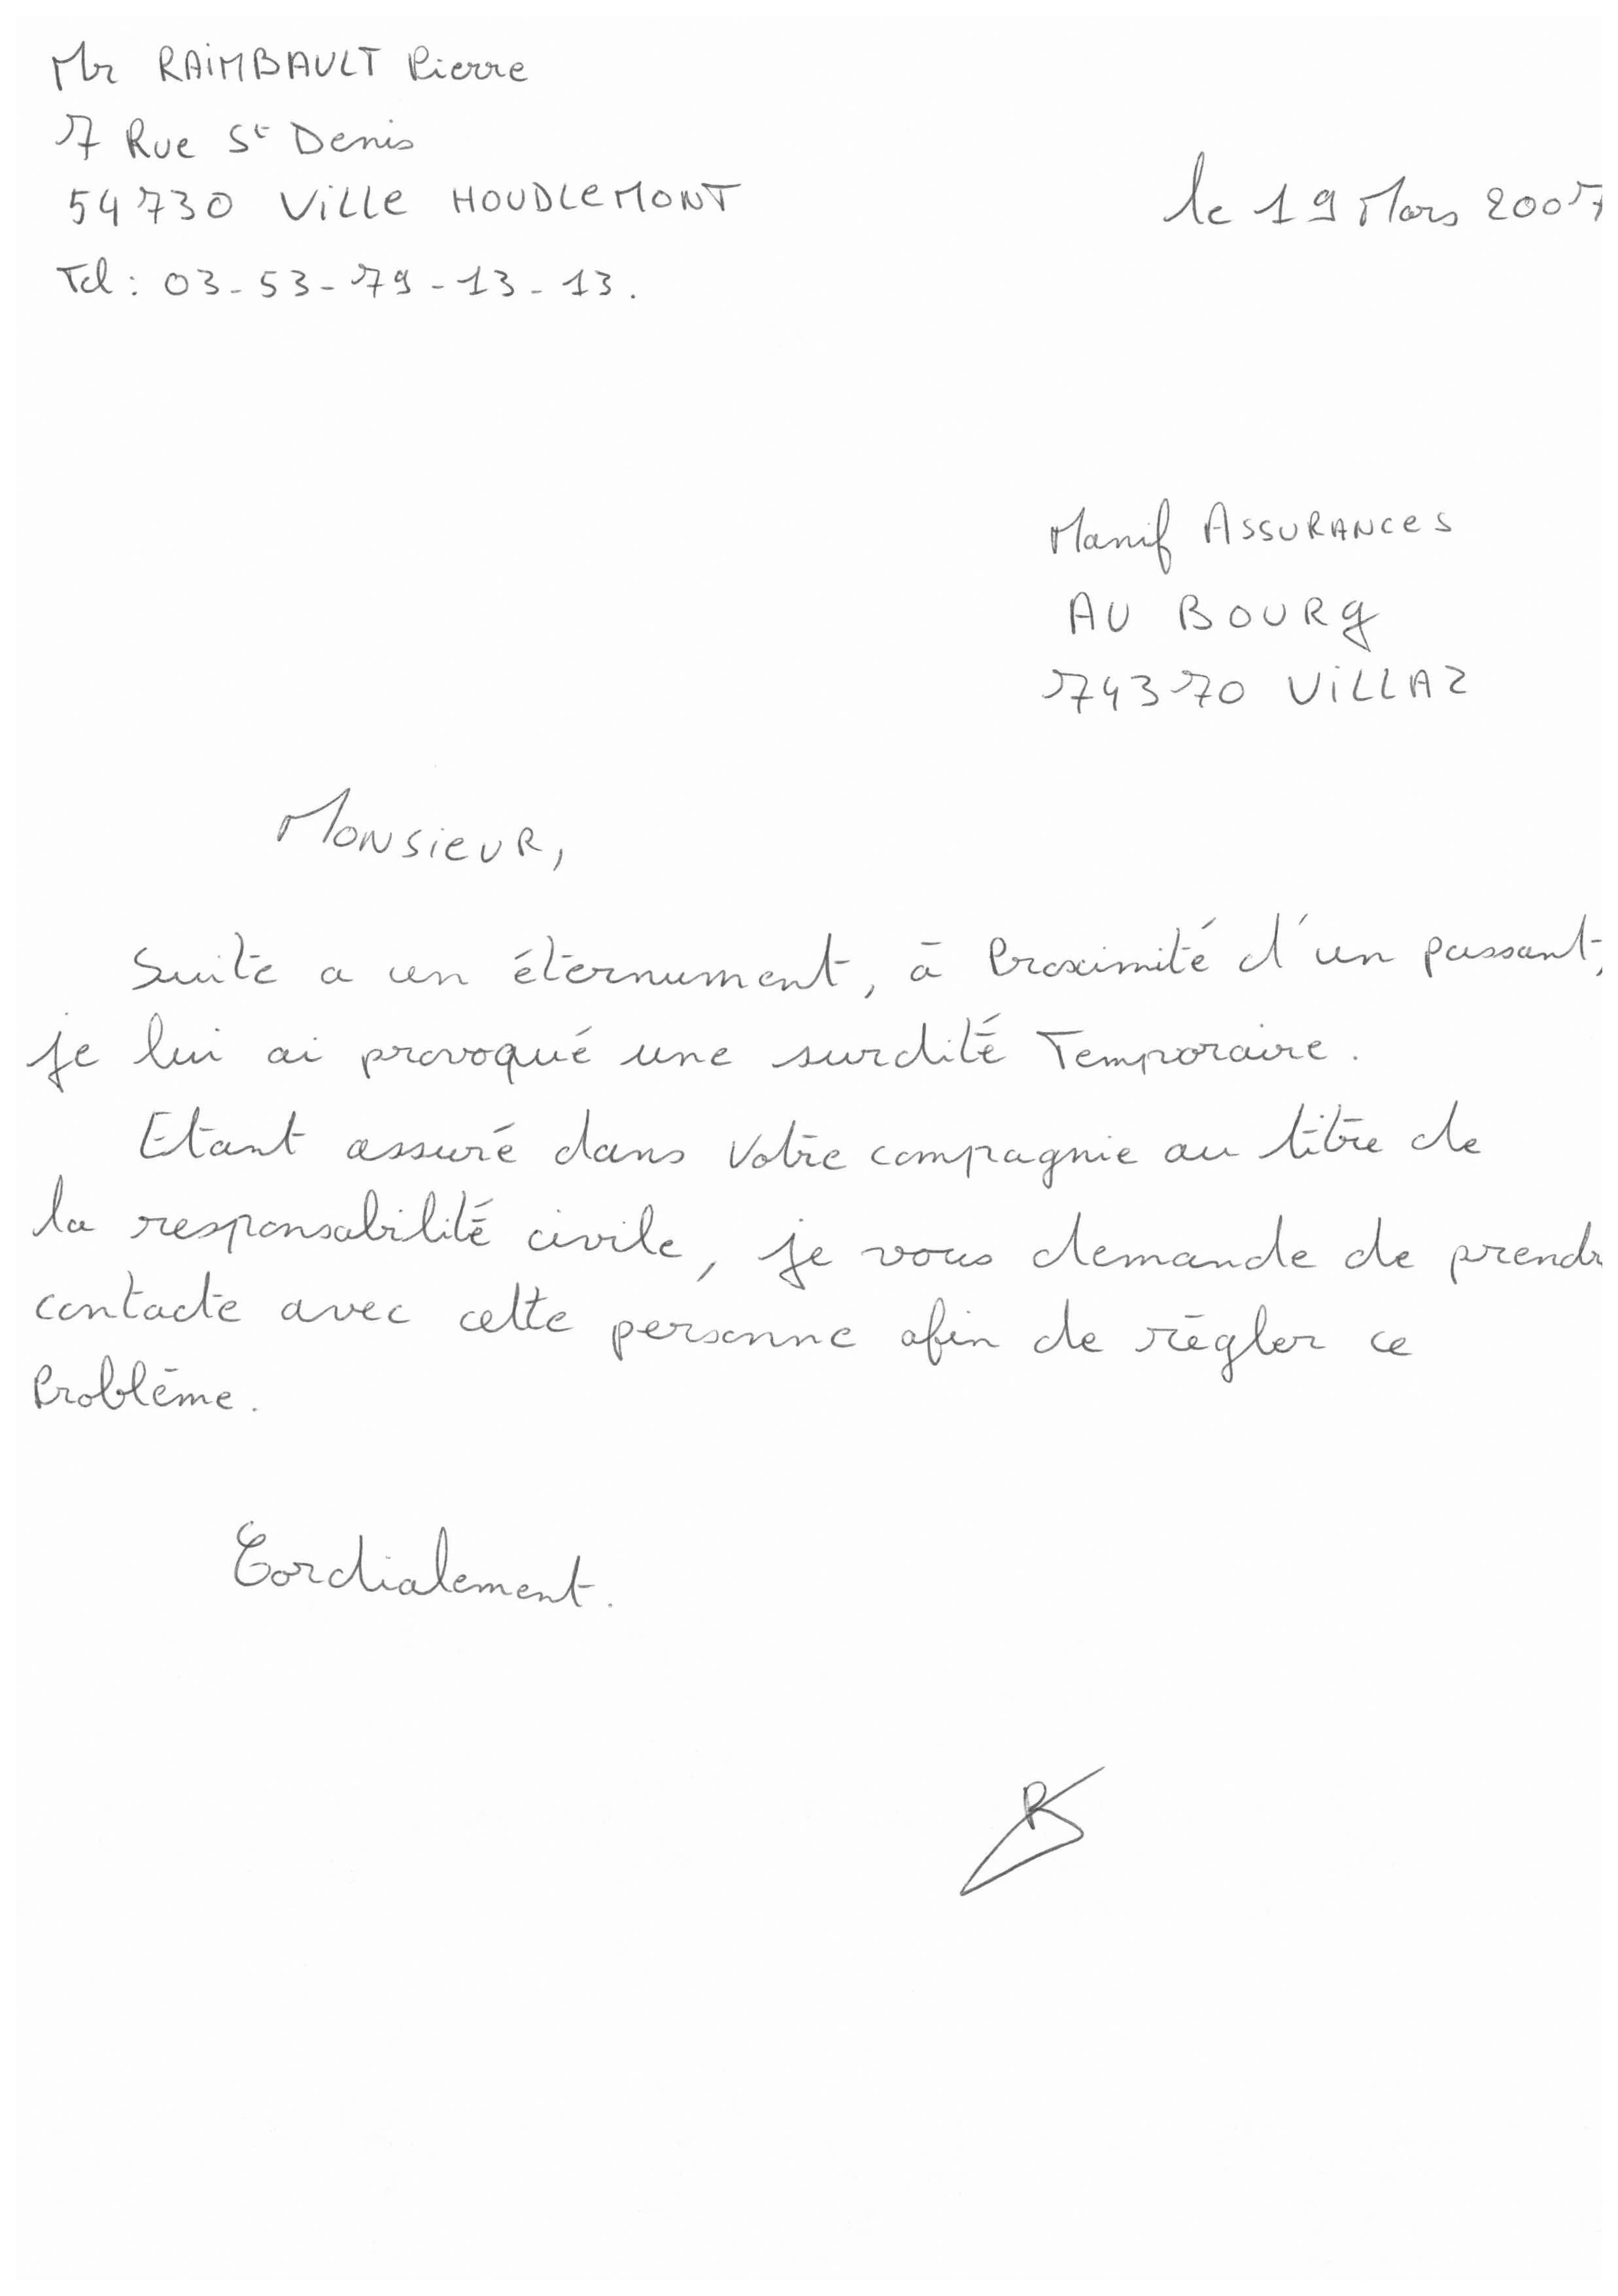 Mr RAIMBAULT Pierre
7 Rue St Denis
54730 Ville HOUDLEMONT
le 19 Mars 2007
Tel : 03-53-79-13-13.
Manif ASSURANCES
AU BOURG
74370 VILLAZ
Monsieur,
Suite a un éternument, à Proximité d'un passant,
je lui ai provoqué une surdité Temporaire.
Etant assuré dans votre compagnie au titre de
la responsabilité civile, je vous demande de prendr
contacte avec cette personne afin de régler ce
Problème.
Cordialement.